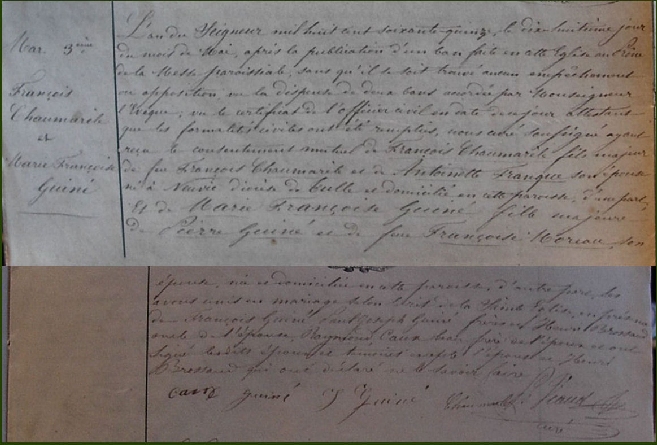 Mar. 3ème
François
Chaumarile
et
Marie Françoise
Guiné
L'an du Seigneur mil huit cent soixante-quinze, le dix huitième jour
du mois de Mai, après la publication d'un ban faite en cette Eglise au Prône
de la Messe paroissiale, sans qu'il se soit trouvé aucun empêchement
ou opposition, vu la dispense de deux bans accordée par Monseigneur
l'Evêque, vu le certificat de l'officier civil en date de ce jour attestant
que les formalités civiles ont été remplies, nous curé soussigné avons
reçu le consentement mutuel de François Chaumarile fils majeur
de feu François Chaumarile et de Antoinette Franque son épouse
né à Neuvic diocèse de Tulle et domicilié en cette paroisse, d'une part,
Et de Marie Françoise Guiné fille majeure
de Pierre Guiné et de feue Françoise Moreau son
épouse, née et domiciliée en cette paroisse, d'autre part, les
avons unis en mariage selon le rit de la Sainte Eglise, en présence
de François Guiné, Joseph Guiné frères, Henri Bressand
oncle de l'épouse, Raymond Caux beau frère de l'époux et ont
signé les dits époux et témoins excepté l'épouse et Henri
Bressand qui ont déclaré ne le savoir faire.
Caux guiné J Guiné
curé